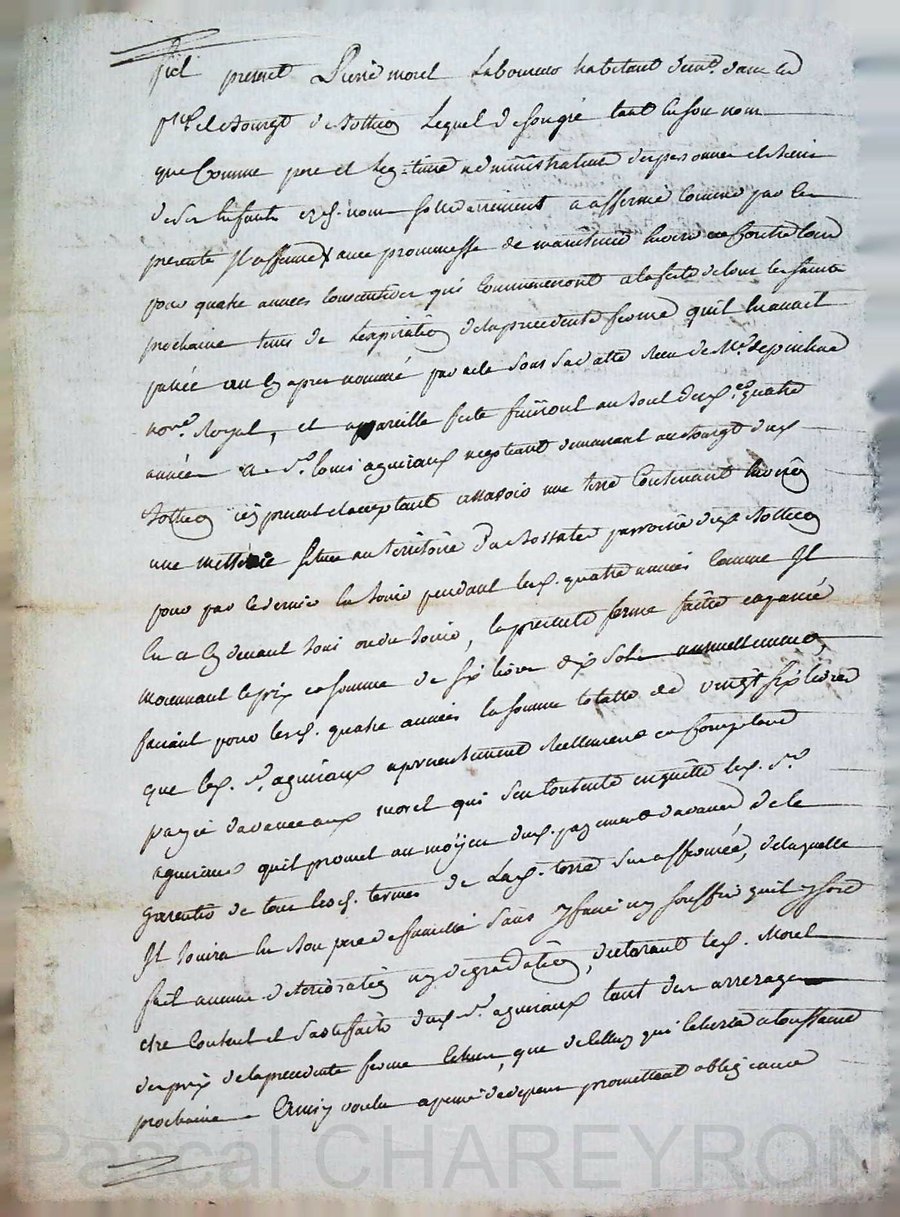 fut present Pierre morel Laboureur habitant dans les
du Bourgt de Lequel de son gré tant en son nom
que Comme pere et legitime administrateur des personnes et biens
de ses Enfants nom solidairement a affermé comme par les
presente Il afferme avec prommesse de maintenir envers et Contre tous
pour quatre années Consecutives qui Commenceront a la fete de tous les saints
prochaine tems de l'expiration de la precedente ferme quil en avait
passée au Cy apres nommé par acte sous sa datte Reçu de Me
nore Royal, et a pareille fete finiront au bout desd. quatre
années a Sr. louis aguiraux negotiant demeurant au Bourgt dud
icy present et acceptant assavoir une terre Contenant environ
une metterée située au territoire paroisse dud
pour par le dernier en Jouir pendant lesd. quatre années Comme Il
en a Cy devant Joui ou du Jouir, la presente ferme faitte et passée
moiennant le prix et somme de six livres dix sols annuellement,
faisant pour lesd. quatre années la somme totalle de vingt six livres
que led. Sr. aguiraux a presentement Reellement et Comptant
payé d'avance aud. morel qui s'en Contente en quitte led. Sr
aguiraux quil promet au moÿen dud. payement d'avance de le
garentir de tous lesd. termes de Lad. terre sus affermée, de laquelle
Il Jouira en bon pere de famille sans y faire ny souffrir quil y soit
fait aucune deterioration ny degradation, declarant led. Morel
etre Content et satisfait dud Sr. aguiraux tant des arrerages
du prix de la precedente ferme que de Celluy qui echerra a toussaint
prochaine - Ainsy voulu a peine de depens promettent obligeance
Pascal CHAREYRON